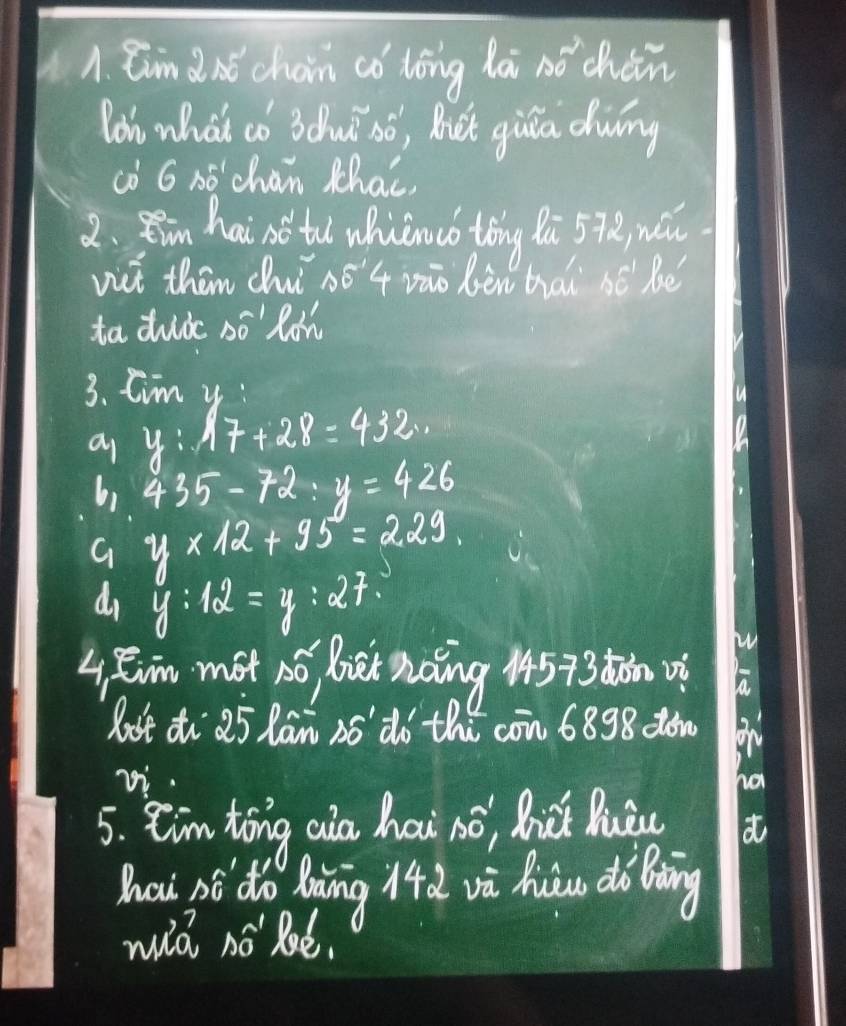 1. Tìm 2 số chẵn có tổng là số chẵn
lớn nhất có 3 chữ số, biết giữa chúng
có 6 số chẵn khác.
2. Tìm hai số tự nhiên có tổng là 572, nếu
viết thêm chữ số 4 vào bên trái số bé
ta được số lớn
3. Tìm y:
a, y : 17 + 28 = 432.
b, 435 - 72 : y = 426
c, y × 12 + 95 = 229.
d, y : 12 = y : 27.
4, Tìm một số, biết rằng 14573 đơn vị
bớt đi 25 lần số đó thì còn 6898 đơn
vị.
5. Tìm tổng của hai số, biết hiệu
hai số đó bằng 142 và hiệu đó bằng
nửa số bé.